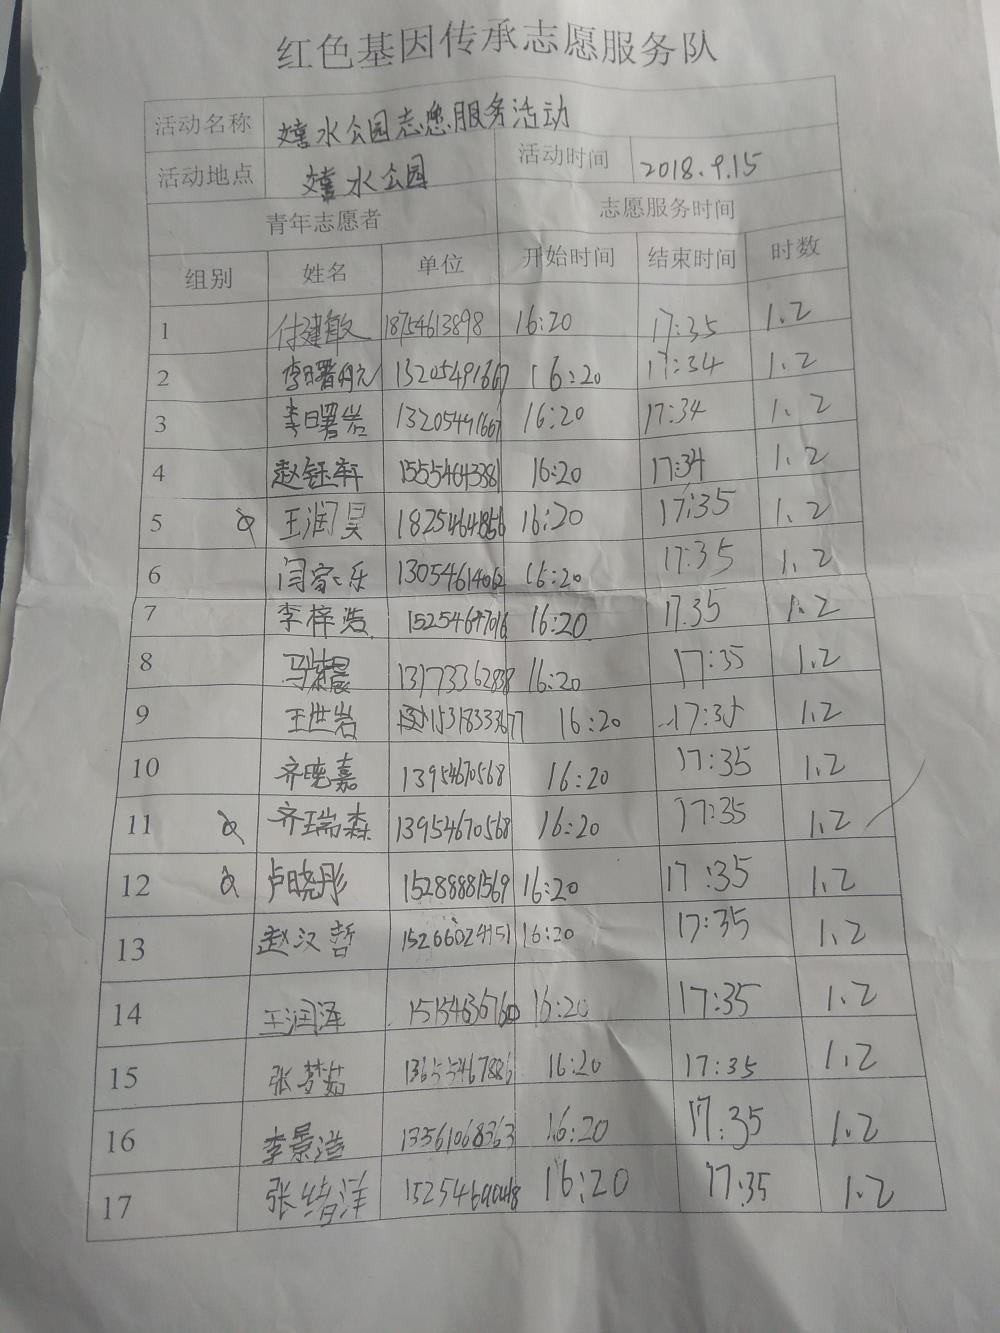 红色基因传承志愿服务队
活动名称 嬉水公园志愿服务活动
活动地点 嬉水公园 活动时间 2018.9.15
青年志愿者 志愿服务时间
组别 姓名 单位 开始时间 结束时间 时数
1 付建敏 18754613898 16:20 17:35 1.2
2 李曙 13205491667 16:20 17:34 1.2
3 李曙岩 13205491667 16:20 17:34 1.2
4 赵钰轩 15554643381 16:20 17:34 1.2
5 王润昊 1825464856 16:20 17:35 1.2
6 闫家乐 13054614062 16:20 17:35 1.2
7 李梓浩 16:20 17:35 1.2
8 13173362838 16:20 17:35 1.2
9 王世岩 15318333677 16:20 17:35 1.2
10 齐晓嘉 13954670568 16:20 17:35 1.2
11 齐瑞森 13954670568 16:20 17:35 1.2
12 卢晓彤 15288881569 16:20 17:35 1.2
13 赵汉哲 15266024151 16:20 17:35 1.2
14 王润泽 16:20 17:35 1.2
15 张梦茹 13655467886 16:20 17:35 1.2
16 李景浩 13561068363 16:20 17:35 1.2
17 张绪洋 16:20 17:35 1.2